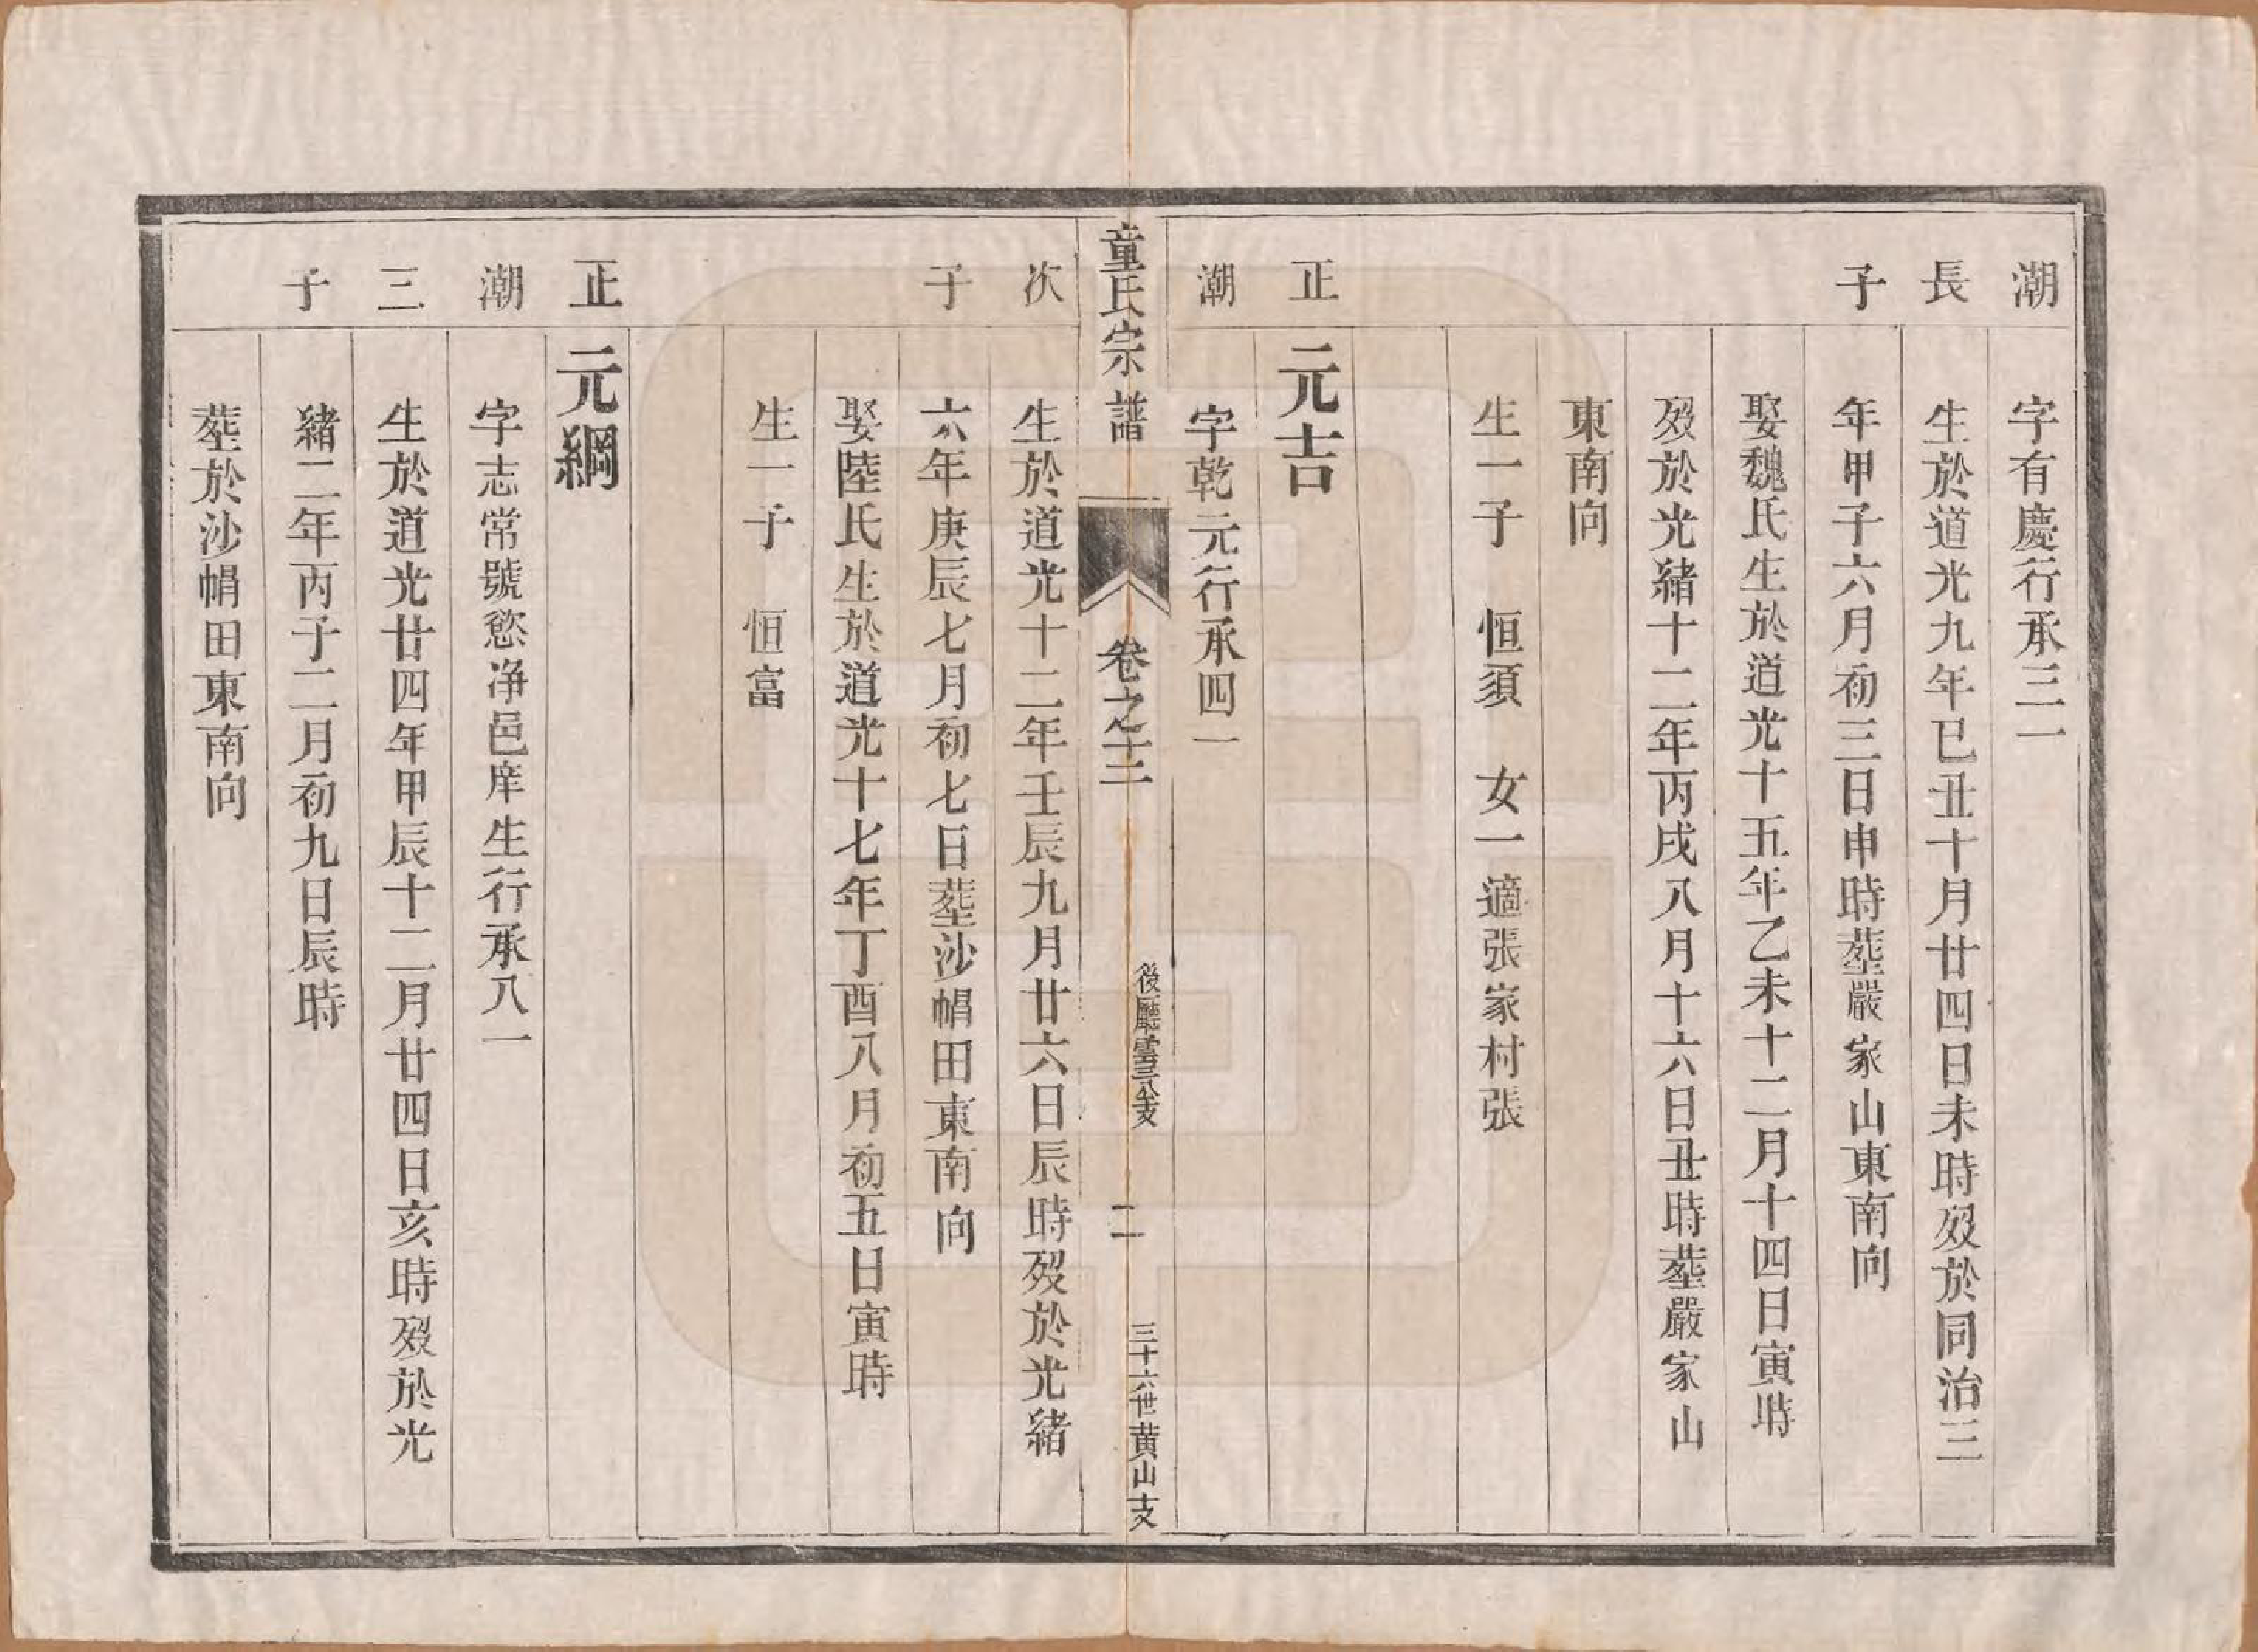 潮 字有慶行承三一
長 生於道光九年巳丑十月廿四日未時歿於同治三
子 年甲子六月初三日申時塟嚴家山東南向
娶魏氏生於道光十五年乙未十二月十四日寅時
歿於光緒十二年丙戌八月十六日丑時塟嚴家山
東南向
生一子 恒須 女一適張家村張
正 元吉
潮 字乾元行承四一
童氏宗譜 卷之十二 後廳雲三公支 二 三十六世黄山支
次 生於道光十二年壬辰九月廿六日辰時歿於光緒
子 六年庚辰七月初七日塟沙帽田東南向
娶陸氏生於道光十七年丁酉八月初五日寅時
生一子 恒富
正 元綱
潮 字志常號慾净邑庠生行承八一
三 生於道光廿四年甲辰十二月廿四日亥時歿於光
子 緒二年丙子二月初九日辰時
塟於沙帽田東南向